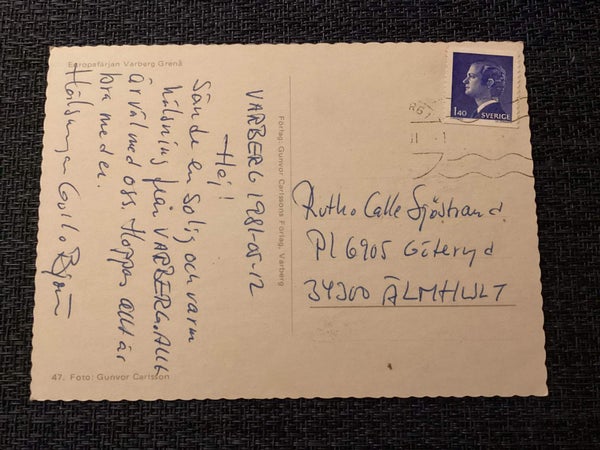 Europafärjan Varberg Grenå
VARBERG 1981-05-12
Hej!
Sände en solig och varm
hälsning från VARBERG. Allt
är väl med oss. Hoppas allt är
bra med er.
Hälsningar Gull o Björn
47. Foto: Gunvor Carlsson
Förlag: Gunvor Carlssons Förlag, Varberg
1.40 SVERIGE
Ruth o Calle Sjöstrand
Pl 6905 Göteryd
34300 ÄLMHULT